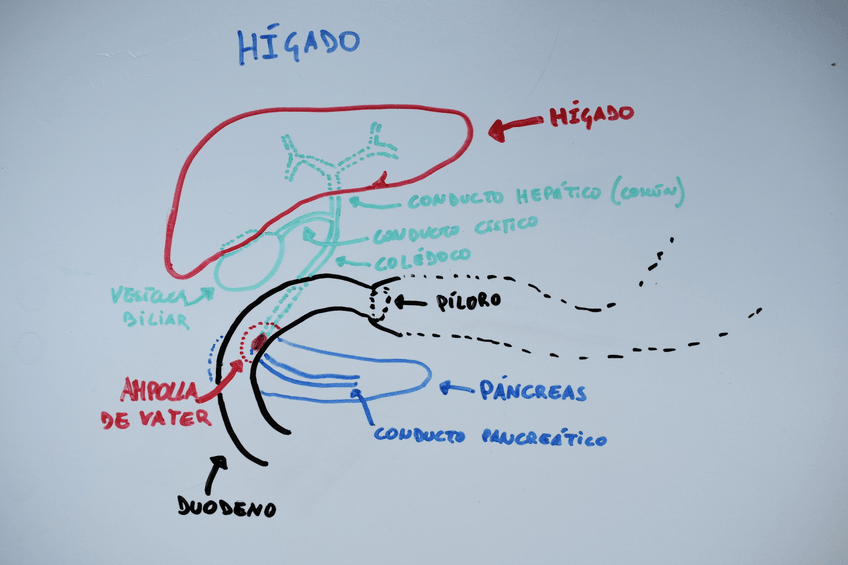 HÍGADO
HÍGADO
CONDUCTO HEPÁTICO (COMÚN)
CONDUCTO CÍSTICO
COLÉDOCO
VESÍCULA
BILIAR
PÍLORO
AMPOLLA
DE VATER
PÁNCREAS
CONDUCTO PANCREÁTICO
DUODENO